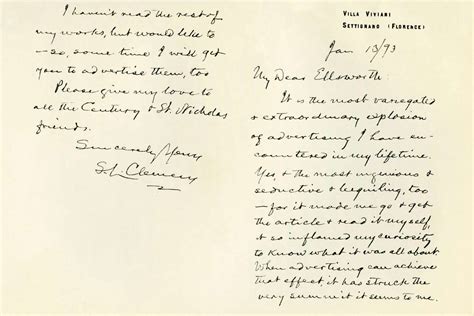 VILLA VIVIANI
SETTIGNANO (FLORENCE)
Jan 13/93
My Dear Ellsworth:
It is the most variegated
& extraordinary explosion
of advertising I have en-
countered in my lifetime.
Yes, & the most ingenious &
seductive & beguiling, too
— for it made me go & get
the article & read it myself,
it so inflamed my curiosity
to know what it was all about.
When advertising can achieve
that effect, it has struck the
very summit it seems to me.
I haven't read the rest of
my works, but would like to
— so, some time I will get
you to advertise them, too.
Please give my love to
all the Century & St. Nicholas
friends.
Sincerely Yours
S. L. Clemens